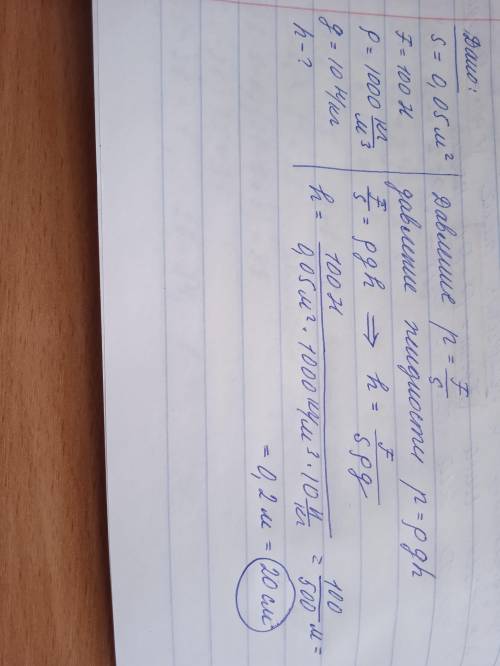 Дано:
S = 0,05 м²
F = 100 Н
ρ = 1000 кг/м³
g = 10 Н/кг
h - ?
Давление p = F/S
давление жидкости p = ρgh
F/S = ρgh ⇒ h = F/Sρg
h = 100 Н / 0,05 м² · 1000 кг/м³ · 10 Н/кг = 100/500 м =
= 0,2 м = 20 см